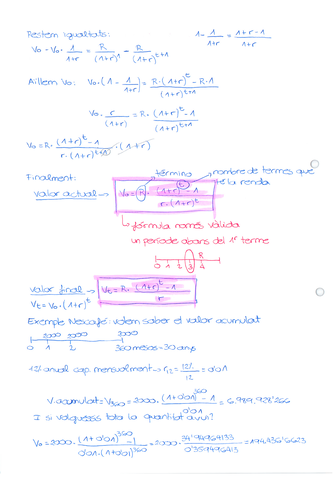 Restem igualtats:
V₀ - V₀ · 1/(1+r) = R/(1+r)¹ - R/(1+r)^(t+1)
1 - 1/(1+r) = (1+r-1)/(1+r)
Aïllem V₀: V₀ · (1 - 1/(1+r)) = (R·(1+r)^t - R·1)/(1+r)^(t+1)
V₀ · r/(1+r) = R · ((1+r)^t - 1)/(1+r)^(t+1)
V₀ = R · ((1+r)^t - 1)/(r·(1+r)^(t+1)) · (1+r)
Finalment:
término
nombre de termes que té la renda
valor actual → V₀ = R · ((1+r)^t - 1)/(r·(1+r)^t)
↳ fórmula només vàlida
un període abans del 1r terme
R
0 1 2 3 4
valor final → Vt = R · ((1+r)^t - 1)/r
Vt = V₀ · (1+r)^t
Exemple Nescafé: volem saber el valor acumulat
2000 2000 2000
0 1 2 360 mesos = 30 anys
12% anual cap. mensualment → r₁₂ = 12%/12 = 0'01
V. acumulat = V₃₆₀ = 2000 · ((1+0'01)^360 - 1)/0'01 = 6.989.928'266
I si volguéssis tota la quantitat avui?
V₀ = 2000 · ((1+0'01)^360 - 1)/(0'01·(1+0'01)^360) = 2000 · 34'94964133/0'3594964133 = 194.436'6623